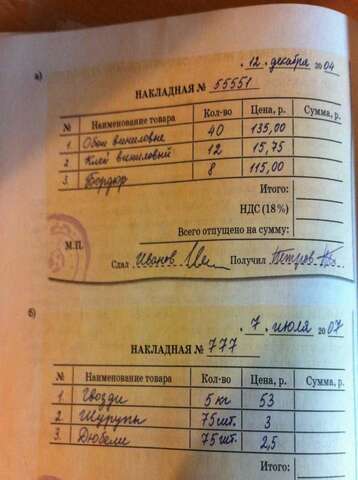 а)
12. декабря 2004
НАКЛАДНАЯ № 55551
№ Наименование товара Кол-во Цена, р. Сумма, р.
1. Обои виниловые 40 135,00
2. Клей виниловый 12 15,75
3. Бордюр 8 115,00
Итого:
НДС (18%)
Всего отпущено на сумму:
М.П.
Сдал Иванов Получил Петров
б)
7. июля 2007
НАКЛАДНАЯ № 777
№ Наименование товара Кол-во Цена, р. Сумма, р.
1. Гвозди 5 кг 53
2. Шурупы 75 шт. 3
3. Дюбели 75 шт. 2,5
Итого: